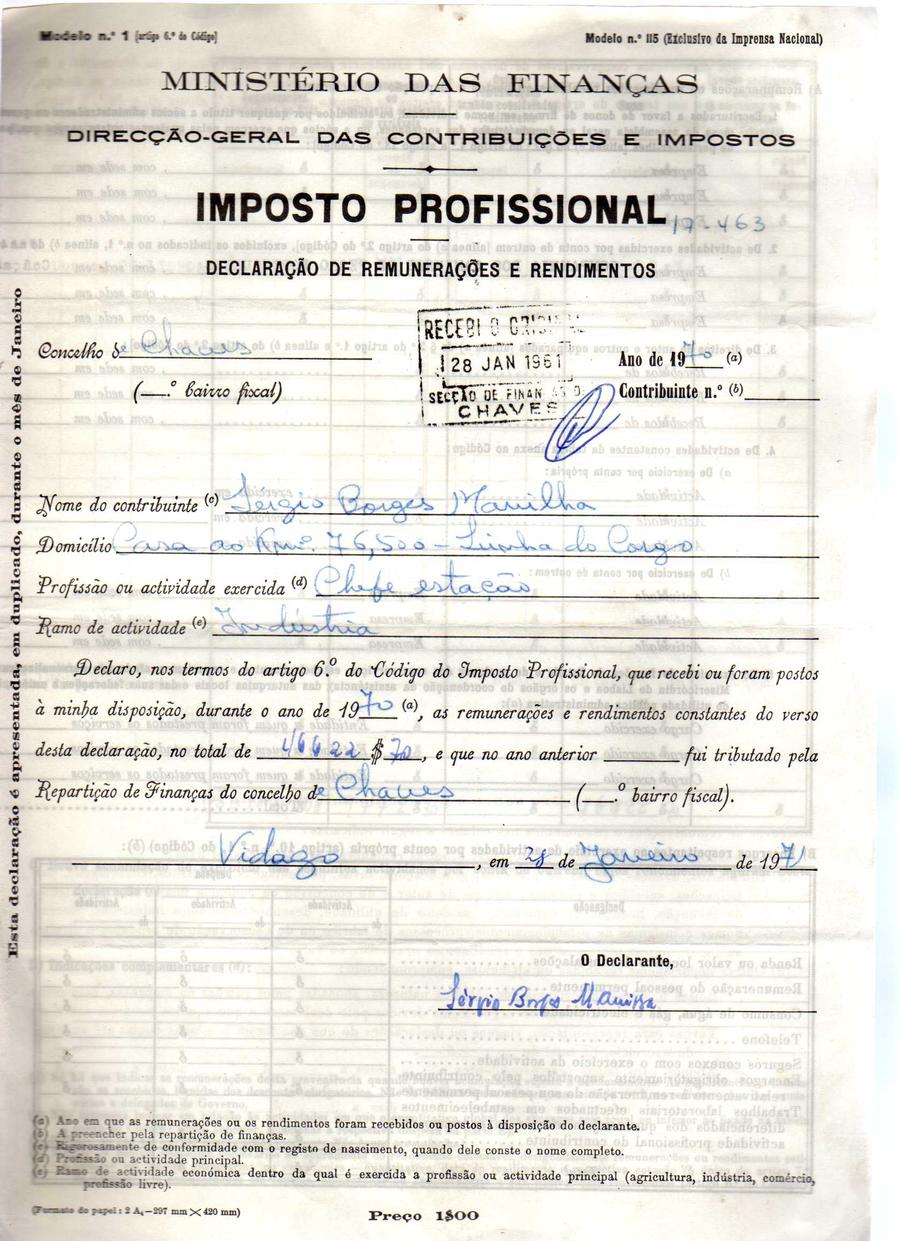 Modelo n.º 1 (artigo 6.º do Código)
Modelo n.º 115 (Exclusivo da Imprensa Nacional)
MINISTÉRIO DAS FINANÇAS
DIRECÇÃO-GERAL DAS CONTRIBUIÇÕES E IMPOSTOS
IMPOSTO PROFISSIONAL
17-463
DECLARAÇÃO DE REMUNERAÇÕES E RENDIMENTOS
Concelho de Chaves
(___.º bairro fiscal)
RECEBI O ORIGINAL
28 JAN 1961
SECÇÃO DE FINANÇAS D
CHAVES
Ano de 1970 (a)
Contribuinte n.º (b)
Nome do contribuinte (c) Sérgio Borges Manilha
Domicílio Casa ao Km.º 76,500 - Linha do Corgo
Profissão ou actividade exercida (d) Chefe estação
Ramo de actividade (e) Indústria
Declaro, nos termos do artigo 6.º do Código do Imposto Profissional, que recebi ou foram postos
à minha disposição, durante o ano de 1970 (a), as remunerações e rendimentos constantes do verso
desta declaração, no total de 46622$70, e que no ano anterior ______ fui tributado pela
Repartição de Finanças do concelho de Chaves (___.º bairro fiscal).
Vidago, em 28 de Janeiro de 1971
O Declarante,
Sérgio Borges Manilha
(a) Ano em que as remunerações ou os rendimentos foram recebidos ou postos à disposição do declarante.
(b) A preencher pela repartição de finanças.
(c) Rigorosamente de conformidade com o registo de nascimento, quando dele conste o nome completo.
(d) Profissão ou actividade principal.
(e) Ramo de actividade económica dentro da qual é exercida a profissão ou actividade principal (agricultura, indústria, comércio,
profissão livre).
(Formato do papel: 2 A4—297 mm × 420 mm)
Preço 1$00
Esta declaração é apresentada, em duplicado, durante o mês de Janeiro